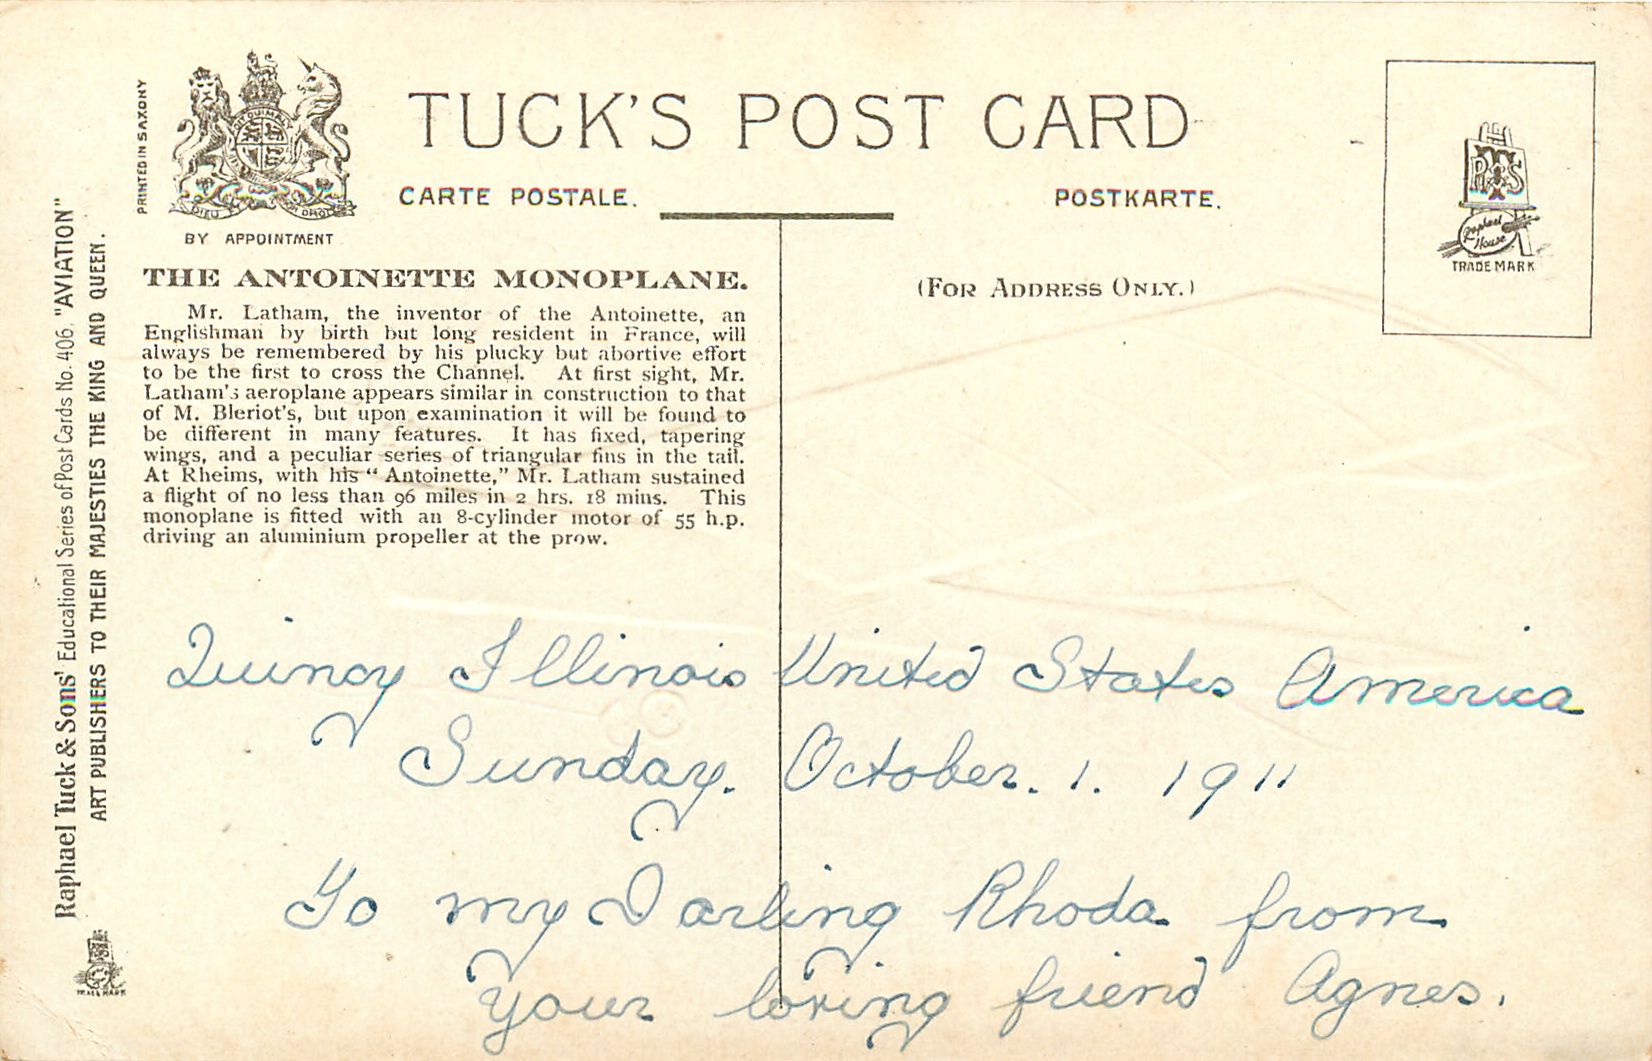 PRINTED IN SAXONY
DIEU ET MON DROIT
BY APPOINTMENT
TUCK'S POST CARD
CARTE POSTALE.
POSTKARTE.
(FOR ADDRESS ONLY.)
Raphael House
TRADE MARK
Raphael Tuck & Sons' Educational Series of Post Cards No. 406. "AVIATION"
ART PUBLISHERS TO THEIR MAJESTIES THE KING AND QUEEN.
TRADE MARK
THE ANTOINETTE MONOPLANE.
Mr. Latham, the inventor of the Antoinette, an
Englishman by birth but long resident in France, will
always be remembered by his plucky but abortive effort
to be the first to cross the Channel. At first sight, Mr.
Latham's aeroplane appears similar in construction to that
of M. Bleriot's, but upon examination it will be found to
be different in many features. It has fixed, tapering
wings, and a peculiar series of triangular fins in the tail.
At Rheims, with his "Antoinette," Mr. Latham sustained
a flight of no less than 96 miles in 2 hrs. 18 mins. This
monoplane is fitted with an 8-cylinder motor of 55 h.p.
driving an aluminium propeller at the prow.
Quincy Illinois United States America
Sunday. October. 1. 1911
To my Darling Rhoda from
your loving friend Agnes.